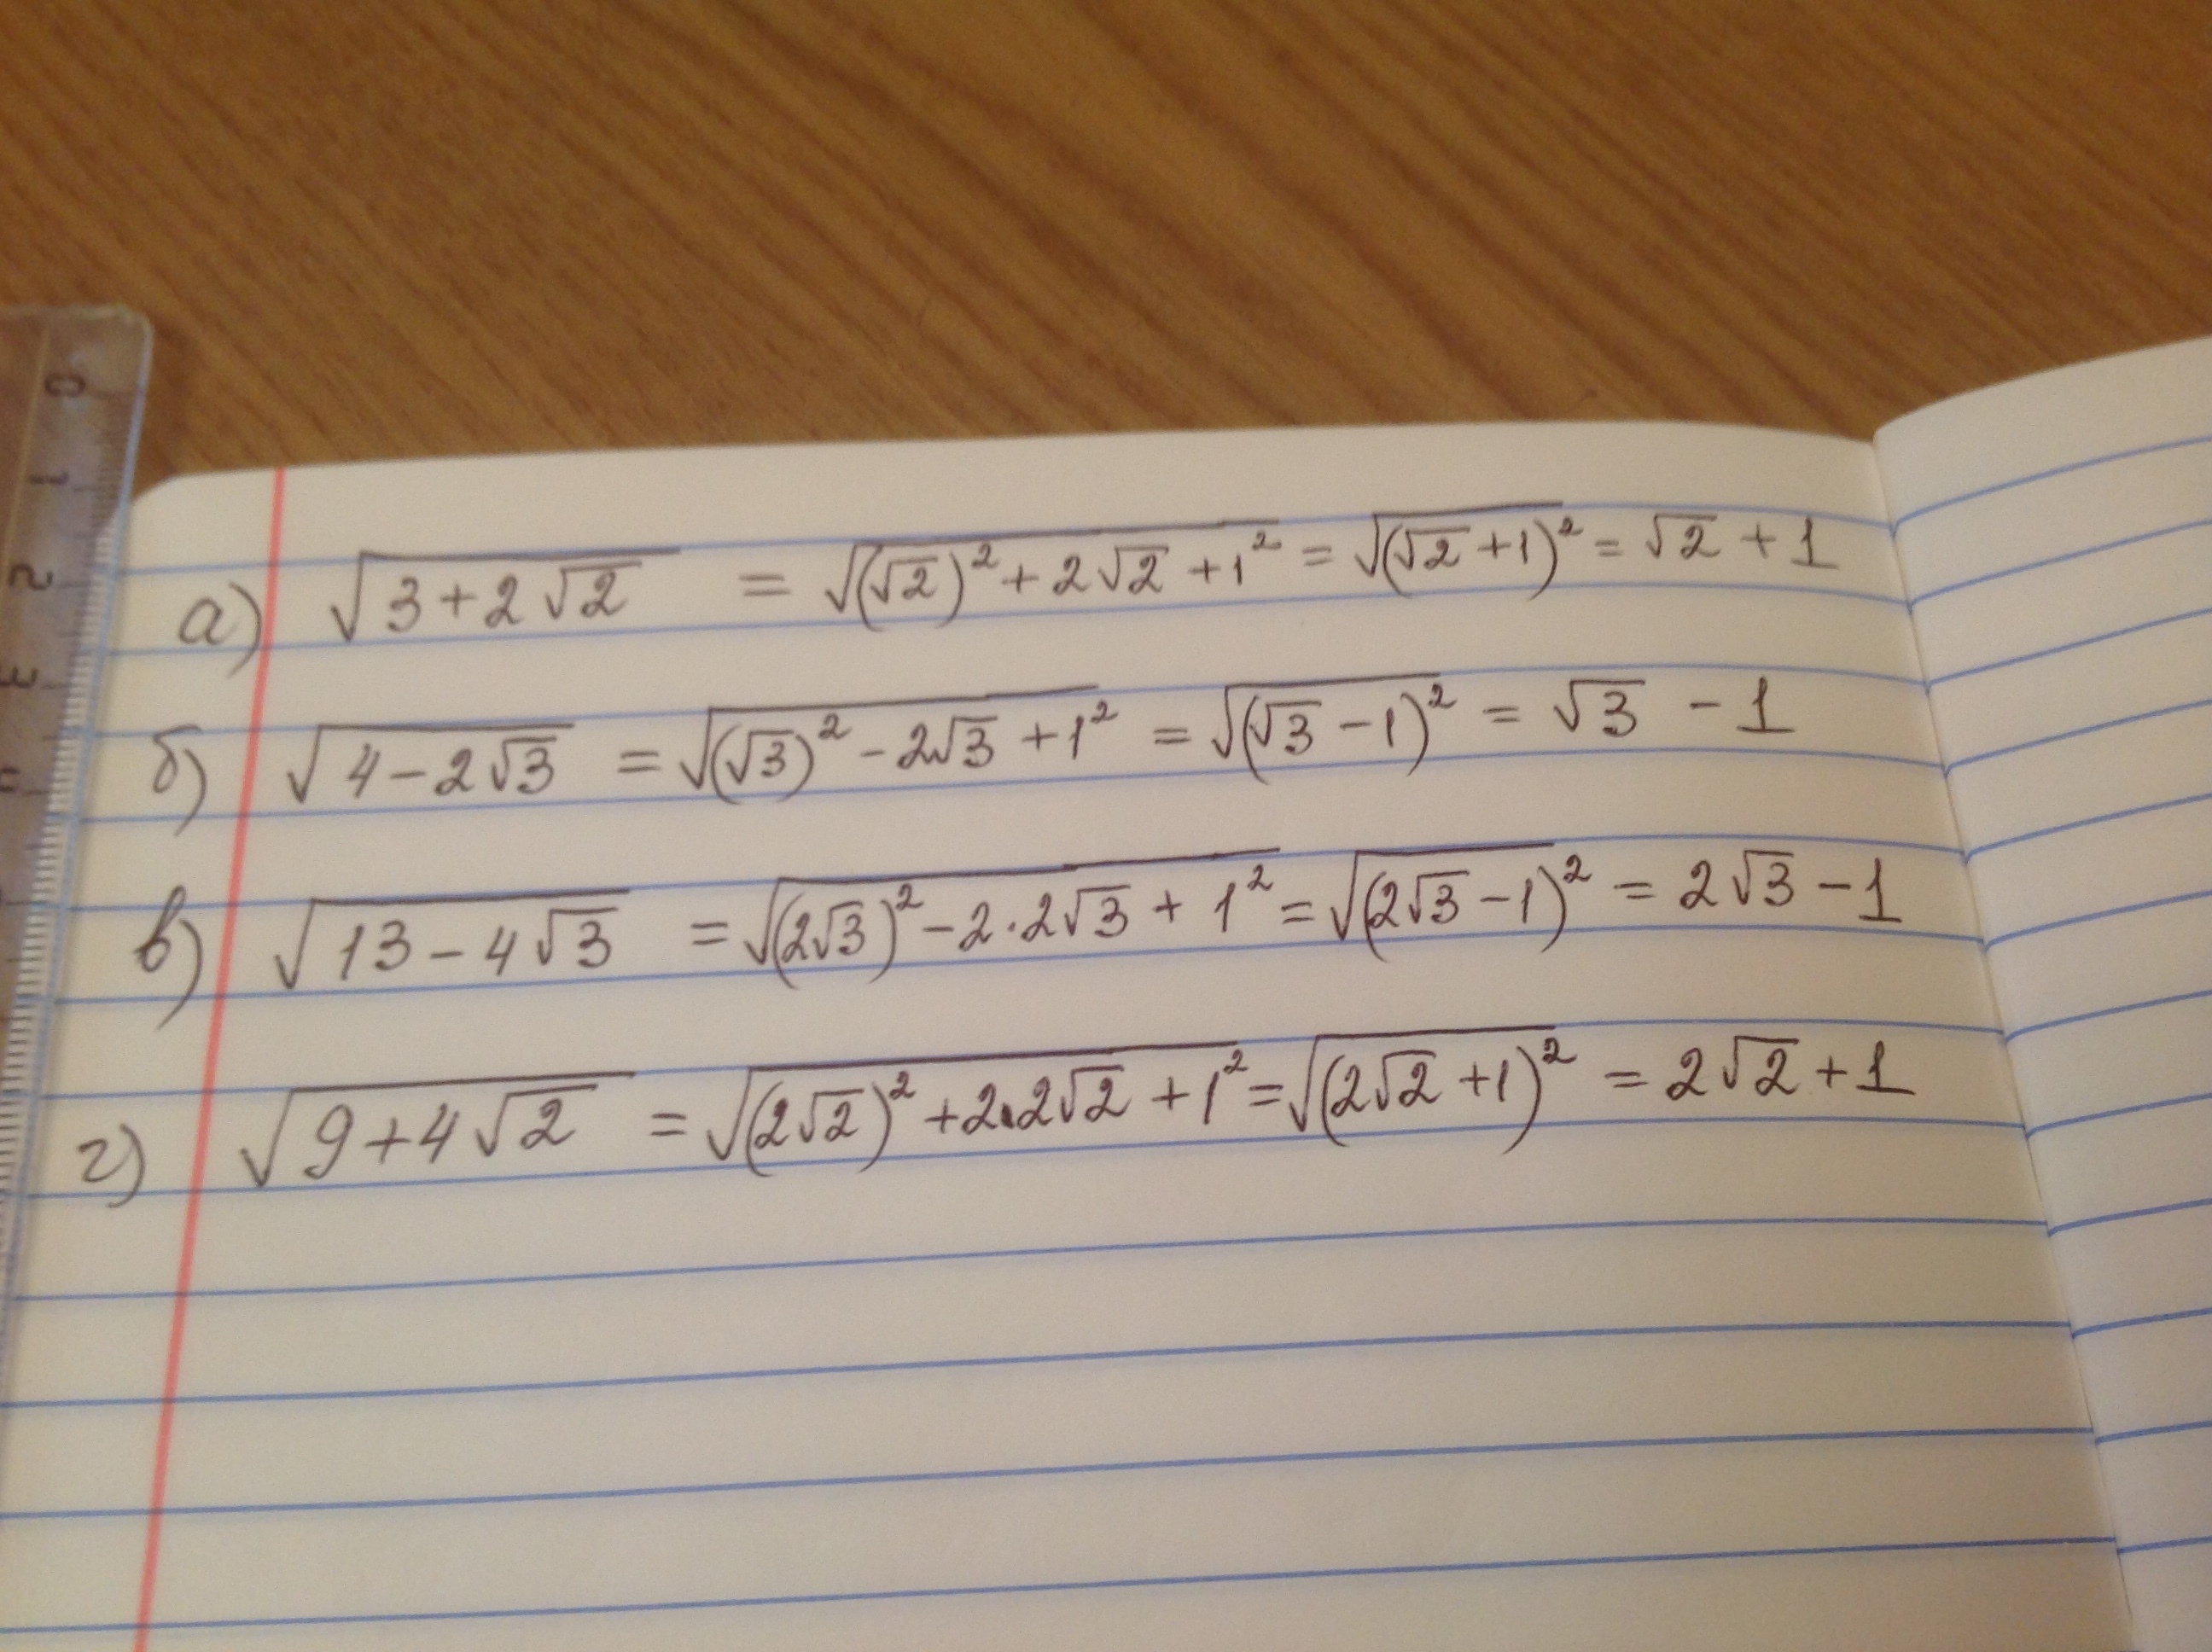 а) √(3+2√2) = √((√2)²+2√2+1²) = √((√2+1)²) = √2+1
б) √(4-2√3) = √((√3)²-2√3+1²) = √((√3-1)²) = √3-1
в) √(13-4√3) = √((2√3)²-2·2√3+1²) = √((2√3-1)²) = 2√3-1
г) √(9+4√2) = √((2√2)²+2·2√2+1²) = √((2√2+1)²) = 2√2+1
0
1
2
3